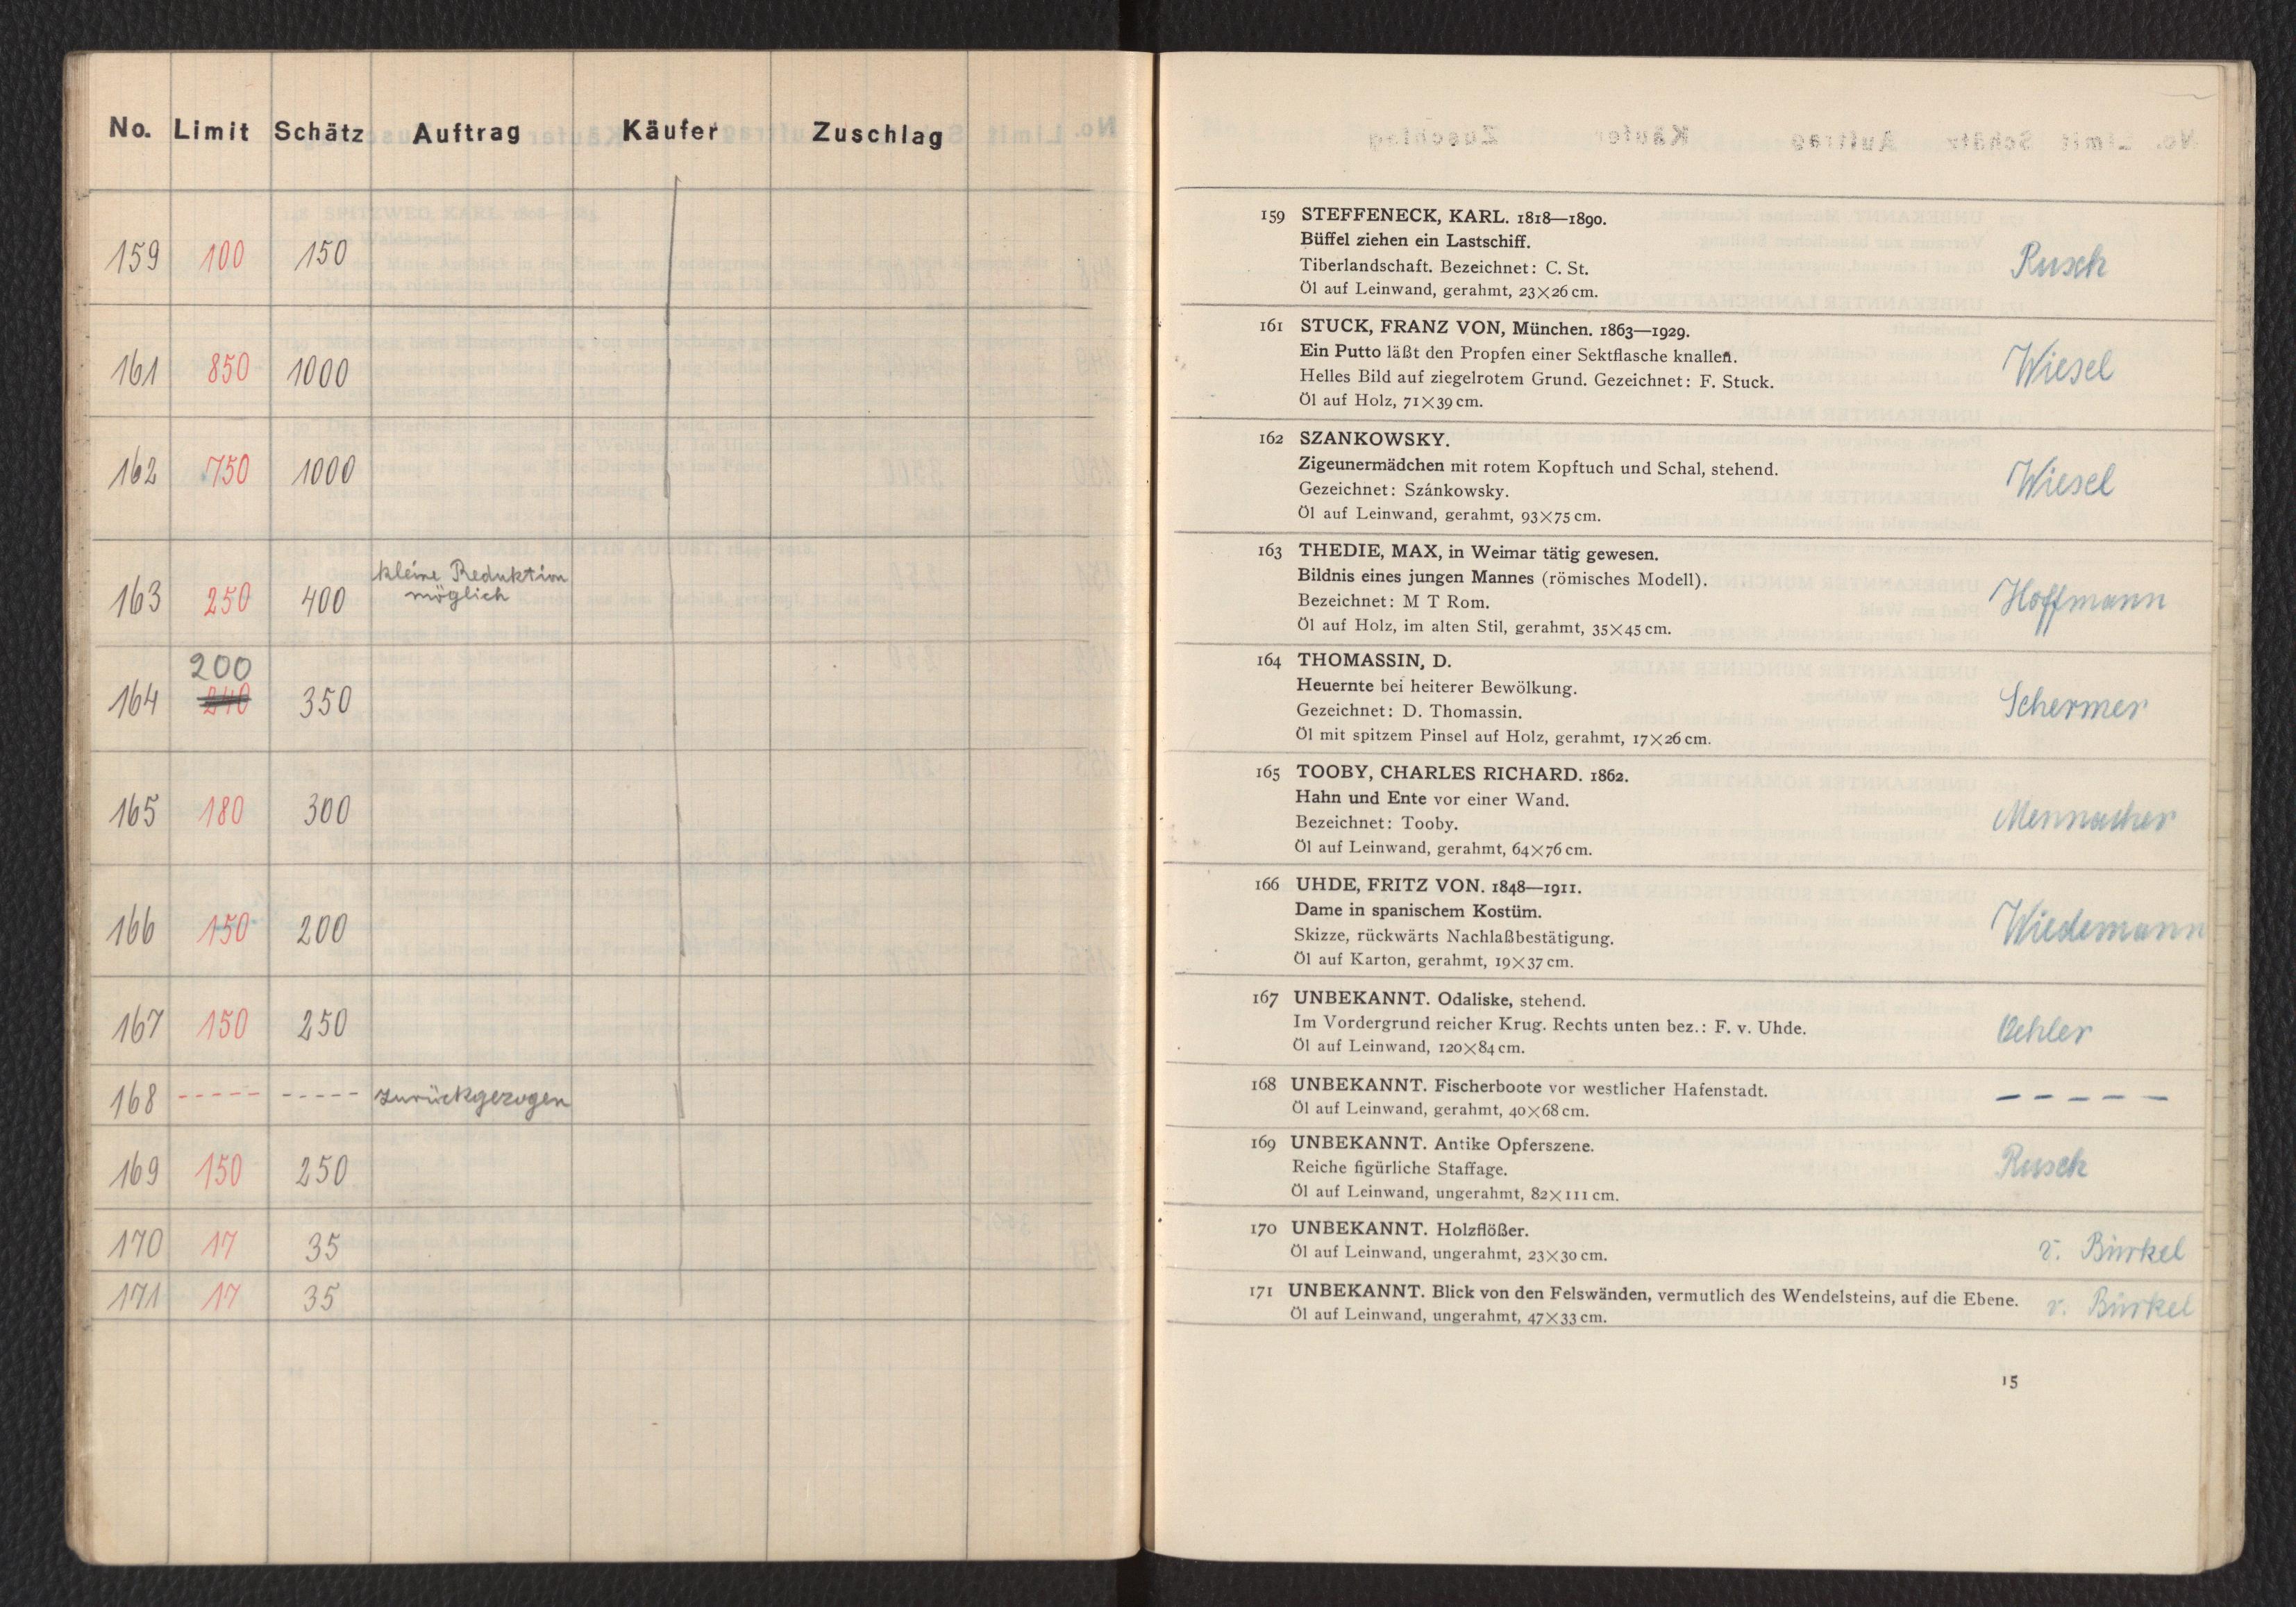 No. Limit Schätz Auftrag Käufer Zuschlag
159 100 150
161 850 1000
162 750 1000
163 250 400 kleine Reduktion
möglich
200
164 240 350
165 180 300
166 150 200
167 150 250
168 ----- ----- zurückgezogen
169 150 250
170 17 35
171 17 35
159 STEFFENECK, KARL. 1818—1890.
Büffel ziehen ein Lastschiff.
Tiberlandschaft. Bezeichnet: C. St.
Öl auf Leinwand, gerahmt, 23×26 cm.
Rusch
161 STUCK, FRANZ VON, München. 1863—1929.
Ein Putto läßt den Propfen einer Sektflasche knallen.
Helles Bild auf ziegelrotem Grund. Gezeichnet: F. Stuck.
Öl auf Holz, 71×39 cm.
Wiesel
162 SZANKOWSKY.
Zigeunermädchen mit rotem Kopftuch und Schal, stehend.
Gezeichnet: Szánkowsky.
Öl auf Leinwand, gerahmt, 93×75 cm.
Wiesel
163 THEDIE, MAX, in Weimar tätig gewesen.
Bildnis eines jungen Mannes (römisches Modell).
Bezeichnet: M T Rom.
Öl auf Holz, im alten Stil, gerahmt, 35×45 cm.
Hoffmann
164 THOMASSIN, D.
Heuernte bei heiterer Bewölkung.
Gezeichnet: D. Thomassin.
Öl mit spitzem Pinsel auf Holz, gerahmt, 17×26 cm.
Schermer
165 TOOBY, CHARLES RICHARD. 1862.
Hahn und Ente vor einer Wand.
Bezeichnet: Tooby.
Öl auf Leinwand, gerahmt, 64×76 cm.
Mennacher
166 UHDE, FRITZ VON. 1848—1911.
Dame in spanischem Kostüm.
Skizze, rückwärts Nachlaßbestätigung.
Öl auf Karton, gerahmt, 19×37 cm.
Wiedemann
167 UNBEKANNT. Odaliske, stehend.
Im Vordergrund reicher Krug. Rechts unten bez.: F. v. Uhde.
Öl auf Leinwand, 120×84 cm.
Oehler
168 UNBEKANNT. Fischerboote vor westlicher Hafenstadt.
Öl auf Leinwand, gerahmt, 40×68 cm.
-----
169 UNBEKANNT. Antike Opferszene.
Reiche figürliche Staffage.
Öl auf Leinwand, ungerahmt, 82×111 cm.
Rusch
170 UNBEKANNT. Holzflößer.
Öl auf Leinwand, ungerahmt, 23×30 cm.
v. Bürkel
171 UNBEKANNT. Blick von den Felswänden, vermutlich des Wendelsteins, auf die Ebene.
Öl auf Leinwand, ungerahmt, 47×33 cm.
v. Bürkel
15